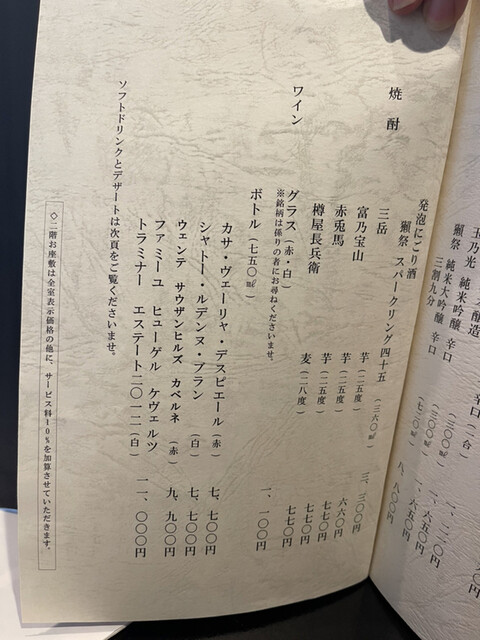 玉乃光 純米吟醸 辛口
獺祭 純米大吟醸 辛口
三割九分
発泡にごり酒
獺祭 スパークリング四十五 (三六〇㎖) 三、三〇〇円
焼酎
三岳 芋 (二五度) 六六〇円
富乃宝山 芋 (二五度) 七七〇円
赤兎馬 芋 (二五度) 七七〇円
樽屋長兵衛 麦 (二八度) 七七〇円
ワイン
グラス (赤・白) 一、一〇〇円
※銘柄は係りの者にお尋ねくださいませ。
ボトル (七五〇㎖)
カサ・ヴェーリャ・デスピエール (赤) 七、七〇〇円
シャトー・ルデンヌ・ブラン (白) 七、七〇〇円
ウェンテ サウザンヒルズ カベルネ (赤) 九、九〇〇円
ファミーユ ヒューゲル ゲヴェルツ
トラミナー エステート二〇一二 (白) 一一、〇〇〇円
ソフトドリンクとデザートは次頁をご覧くださいませ。
◇二階お座敷は全室表示価格の他に、サービス料10%を加算させていただきます。